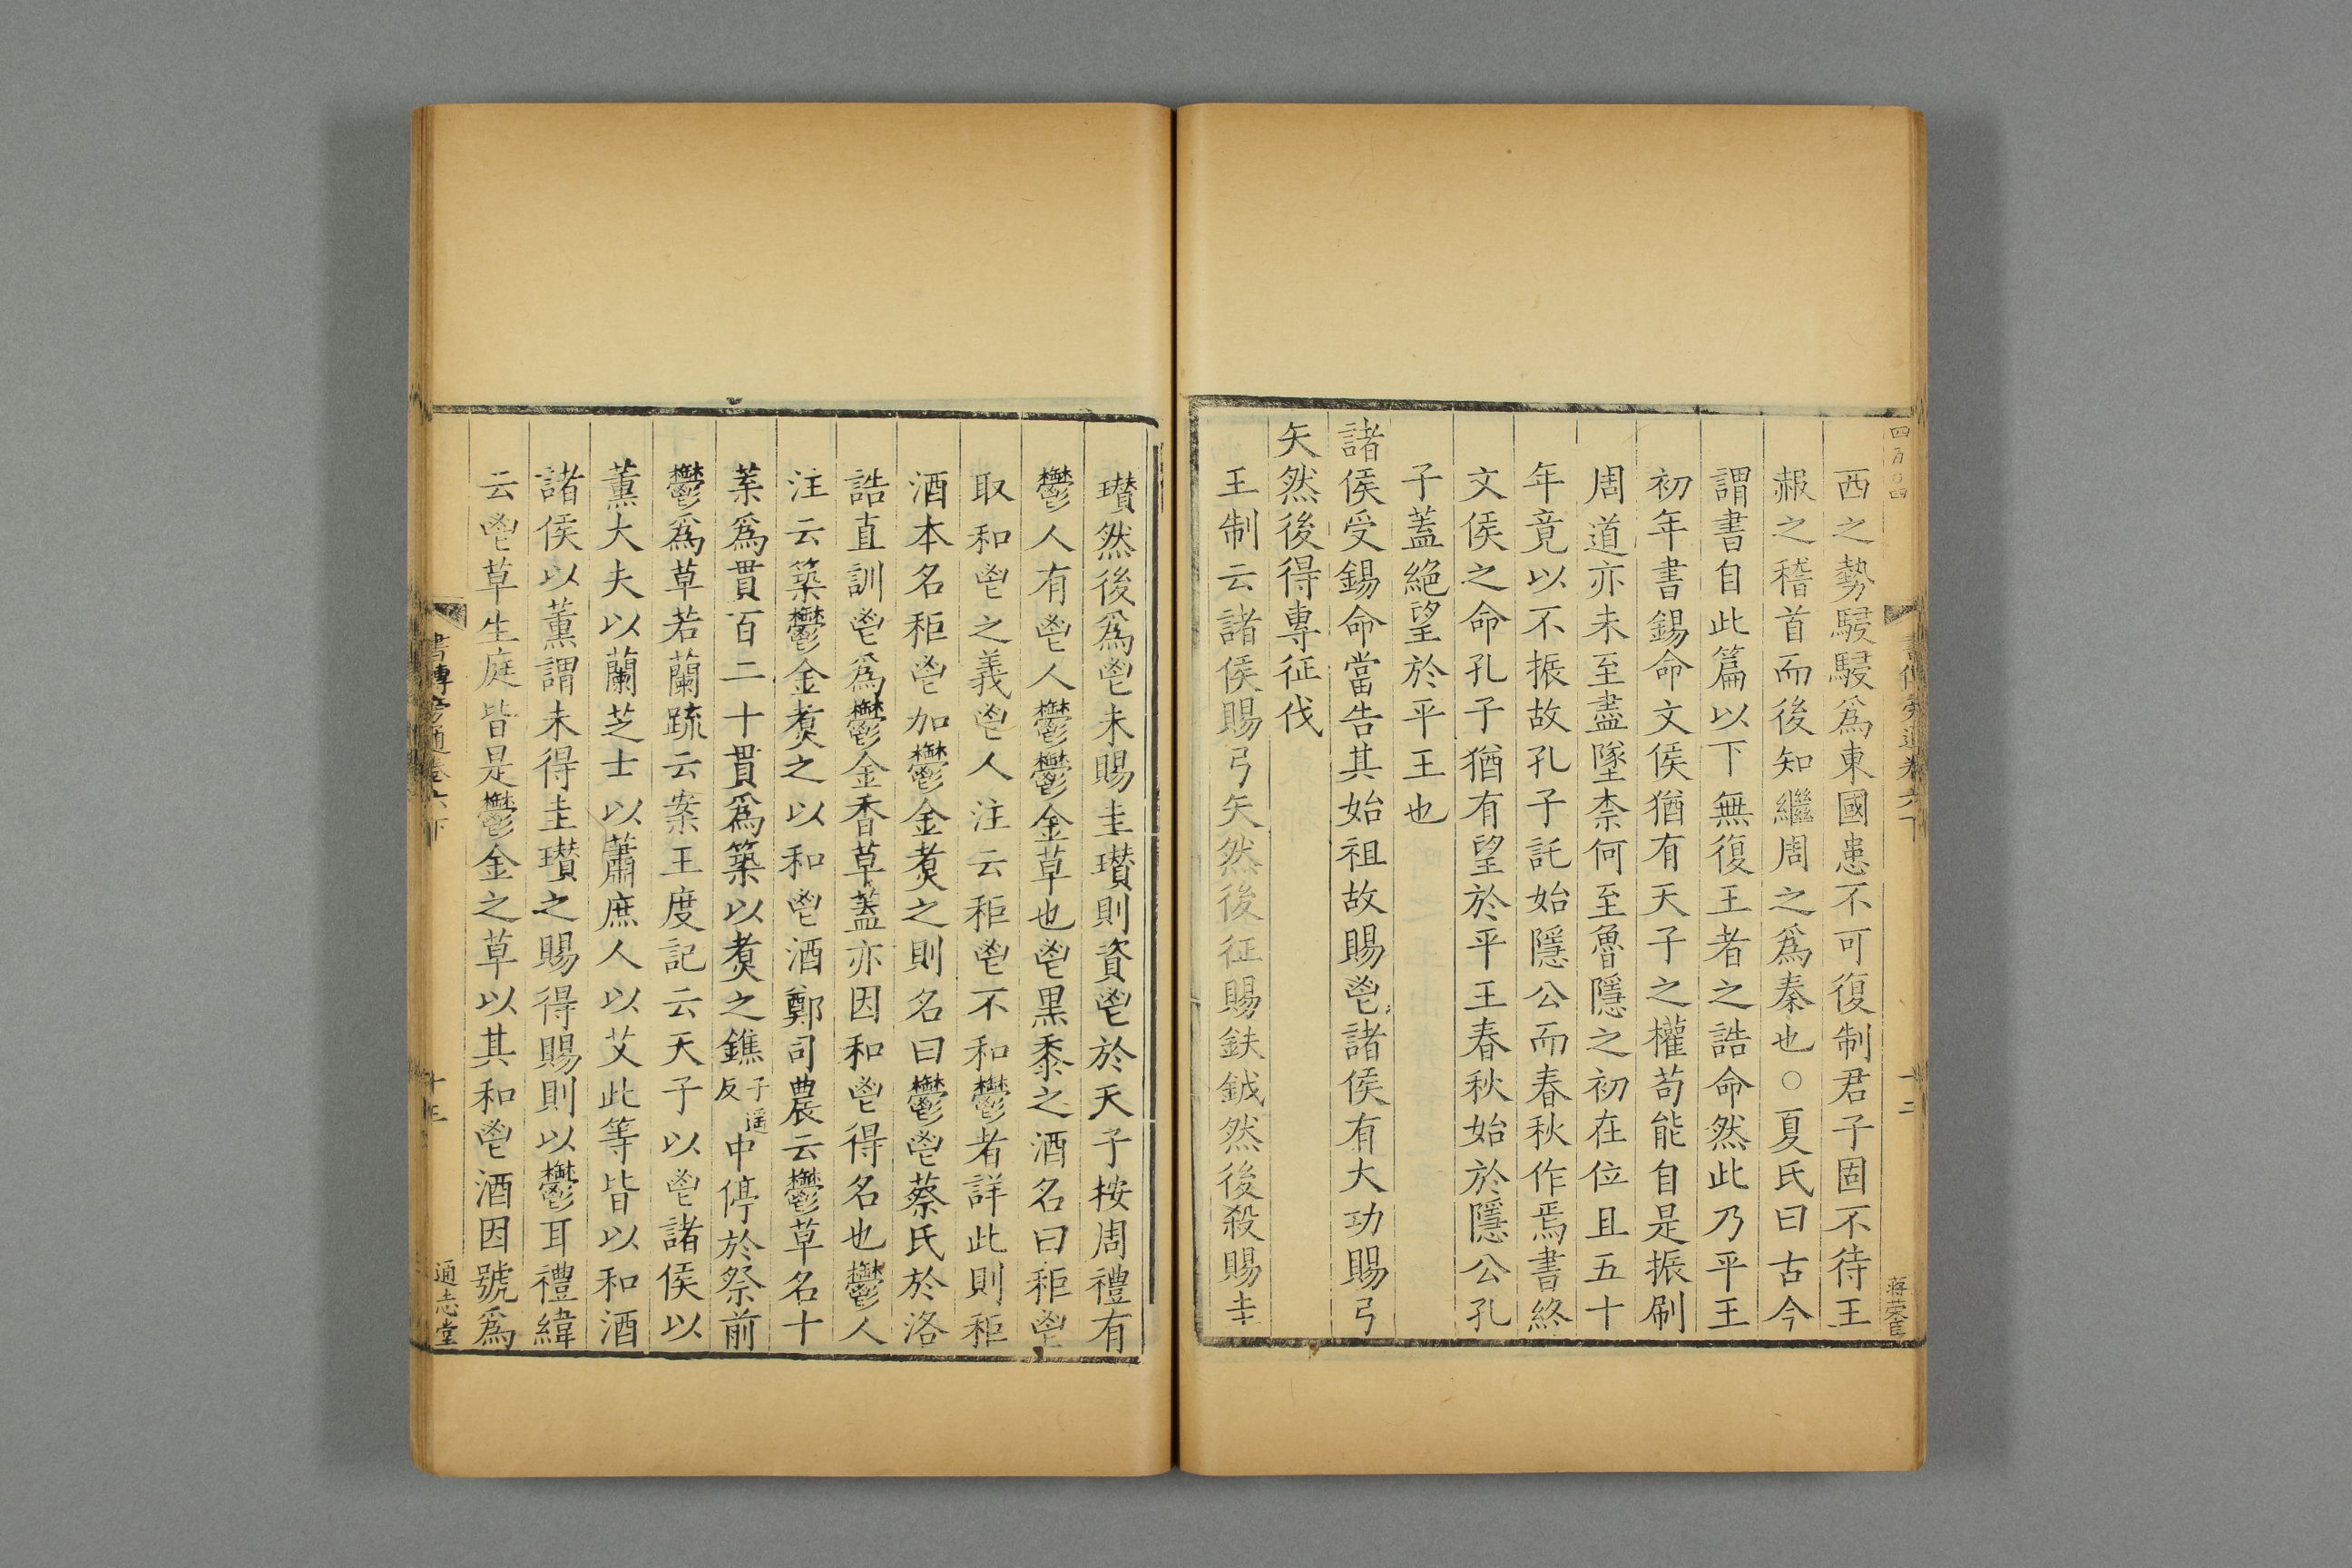 西之勢駸駸爲東國患不可復制君子固不待王
赧之稽首而後知繼周之爲秦也○夏氏曰古今
謂書自此篇以下無復王者之誥命然此乃平王
初年書錫命文侯猶有天子之權苟能自是振刷
周道亦未至盡墜柰何至魯隱之初在位且五十
年竟以不振故孔子託始隱公而春秋作焉書終
文侯之命孔子猶有望於平王春秋始於隱公孔
子蓋絕望於平王也
諸侯受錫命當告其始祖故賜鬯諸侯有大功賜弓
矢然後得專征伐
王制云諸侯賜弓矢然後征賜鈇鉞然後殺賜圭
瓚然後爲鬯未賜圭瓚則資鬯於天子按周禮有
鬱人有鬯人鬱鬱金草也鬯黑黍之酒名曰秬鬯
取和鬯之義鬯人注云秬鬯不和鬱者詳此則秬
酒本名秬鬯加鬱金煑之則名曰鬱鬯蔡氏於洛
誥直訓鬯爲鬱金香草蓋亦因和鬯得名也鬱人
注云築鬱金煑之以和鬯酒鄭司農云鬱草名十
葉爲貫百二十貫爲築以煑之鐎子遥反中停於祭前
鬱爲草若蘭疏云案王度記云天子以鬯諸侯以
薰大夫以蘭芝士以蕭庶人以艾此等皆以和酒
諸侯以薰謂未得圭瓚之賜得賜則以鬱耳禮緯
云鬯草生庭皆是鬱金之草以其和鬯酒因號爲
書傳旁通卷六下
十三
通志堂